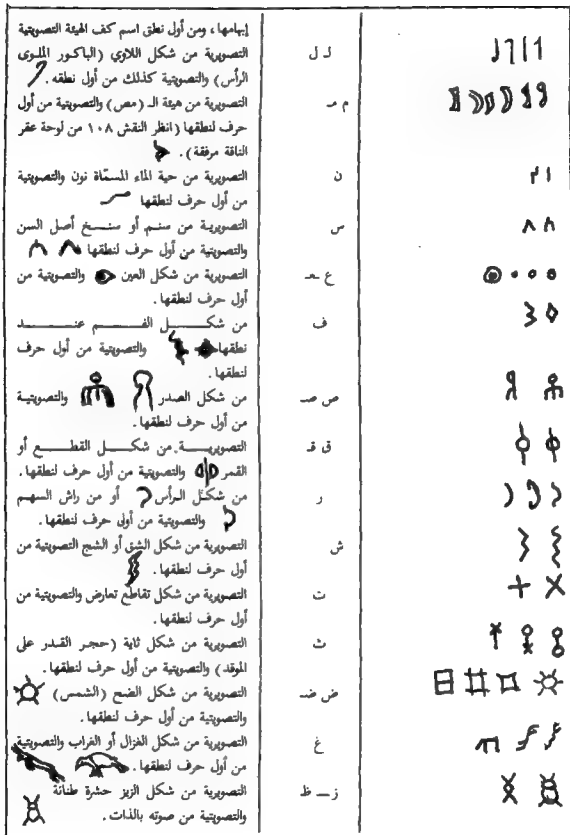 إبهامها، ومن أول نطق اسم كف الهيئة التصويتية
التصويرية من شكل اللاوي (الباكور الملوى
الرأس) والتصويتية كذلك من أول نطقه.
ل ل
التصويرية من هيئة الـ (مص) والتصويتية من أول
حرف لنطقها (انظر النقش ١٠٨ من لوحة عقر
الناقة مرفقة).
م مـ
التصويرية من حية الماء المسمّاة نون والتصويتية
من أول حرف لنطقها
ن
التصويرية من سنم أو سنخ أصل السن
والتصويتية من أول حرف لنطقها
س
التصويرية من شكل العين والتصويتية من
أول حرف لنطقها.
ع عـ
من شكل الفم عند
نطقها والتصويتية من أول حرف
لنطقها.
ف
من شكل الصدر والتصويتية
من أول حرف لنطقها.
ص صـ
التصويرية من شكل القطع أو
القمر والتصويتية من أول حرف لنطقها.
ق قـ
من شكل الرأس أو من راش السهم
والتصويتية من أولى حرف لنطقها.
ر
التصويرية من شكل الشق أو الشج التصويتية من
أول حرف لنطقها.
ش
التصويرية من شكل تقاطع تعارض والتصويتية من
أول حرف لنطقها.
ت
التصويرية من شكل ثاية (حجر القدر على
الموقد) والتصويتية من أول حرف لنطقها.
ث
التصويرية من شكل الضح (الشمس)
والتصويتية من أول حرف لنطقها.
ض ضـ
التصويرية من شكل الغزال أو الغراب والتصويتية
من أول حرف لنطقها.
غ
التصويرية من شكل الزيز حشرة طنانة
والتصويتية من صوته بالذات.
ز – ظ